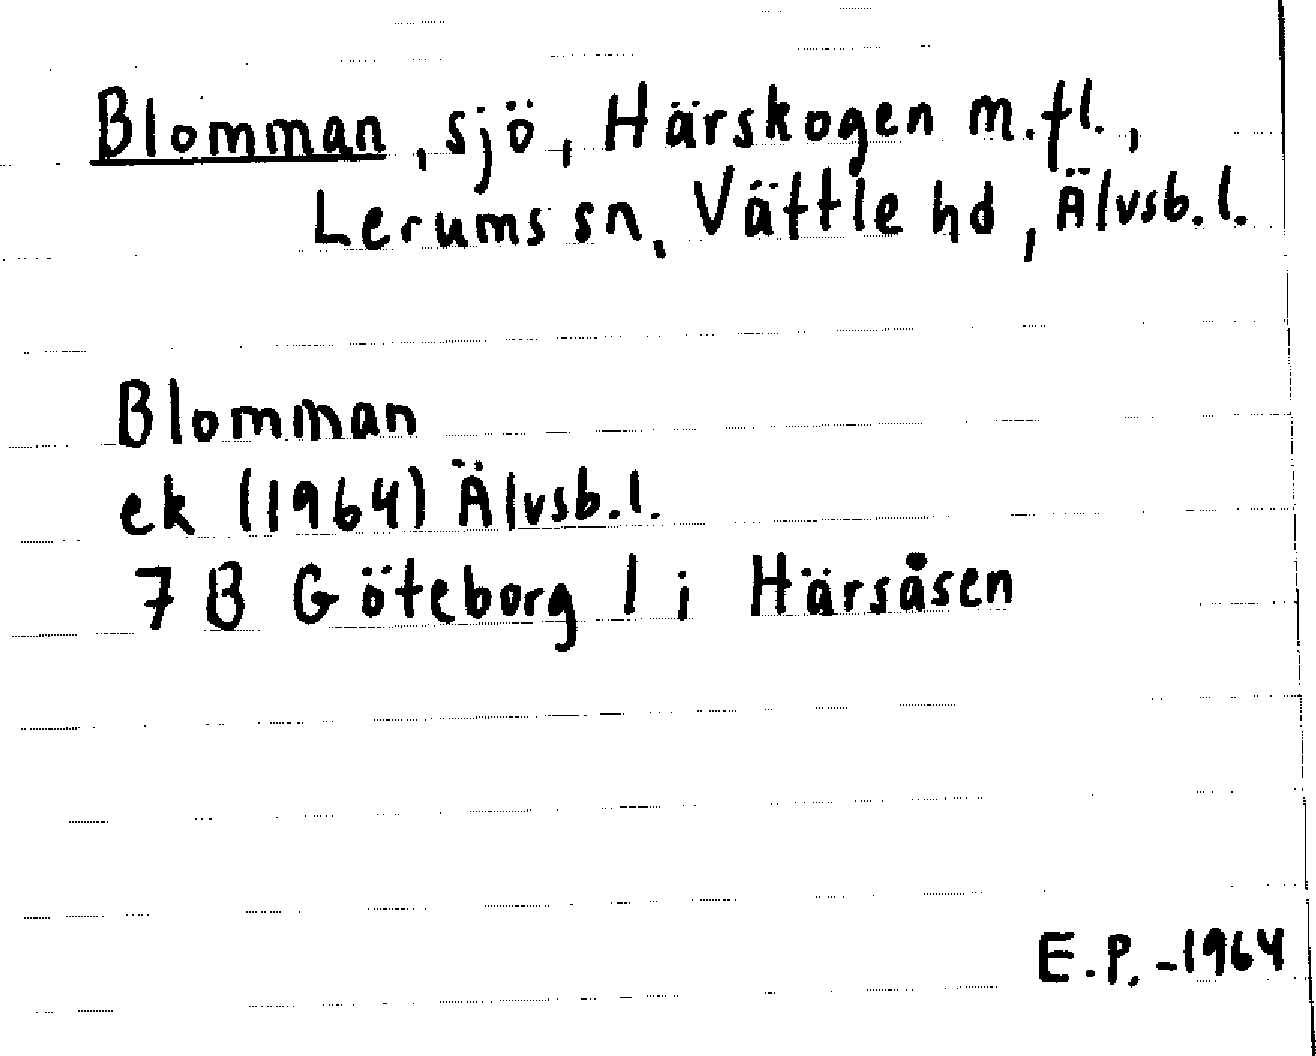 Blomman, sjö, Härskogen m.fl.,
Lerums sn, Vättle hd, Älvsb.l.
Blomman
ek (1964) Älvsb.l.
7 B Göteborg 1 i Härsåsen
E.P. -1964